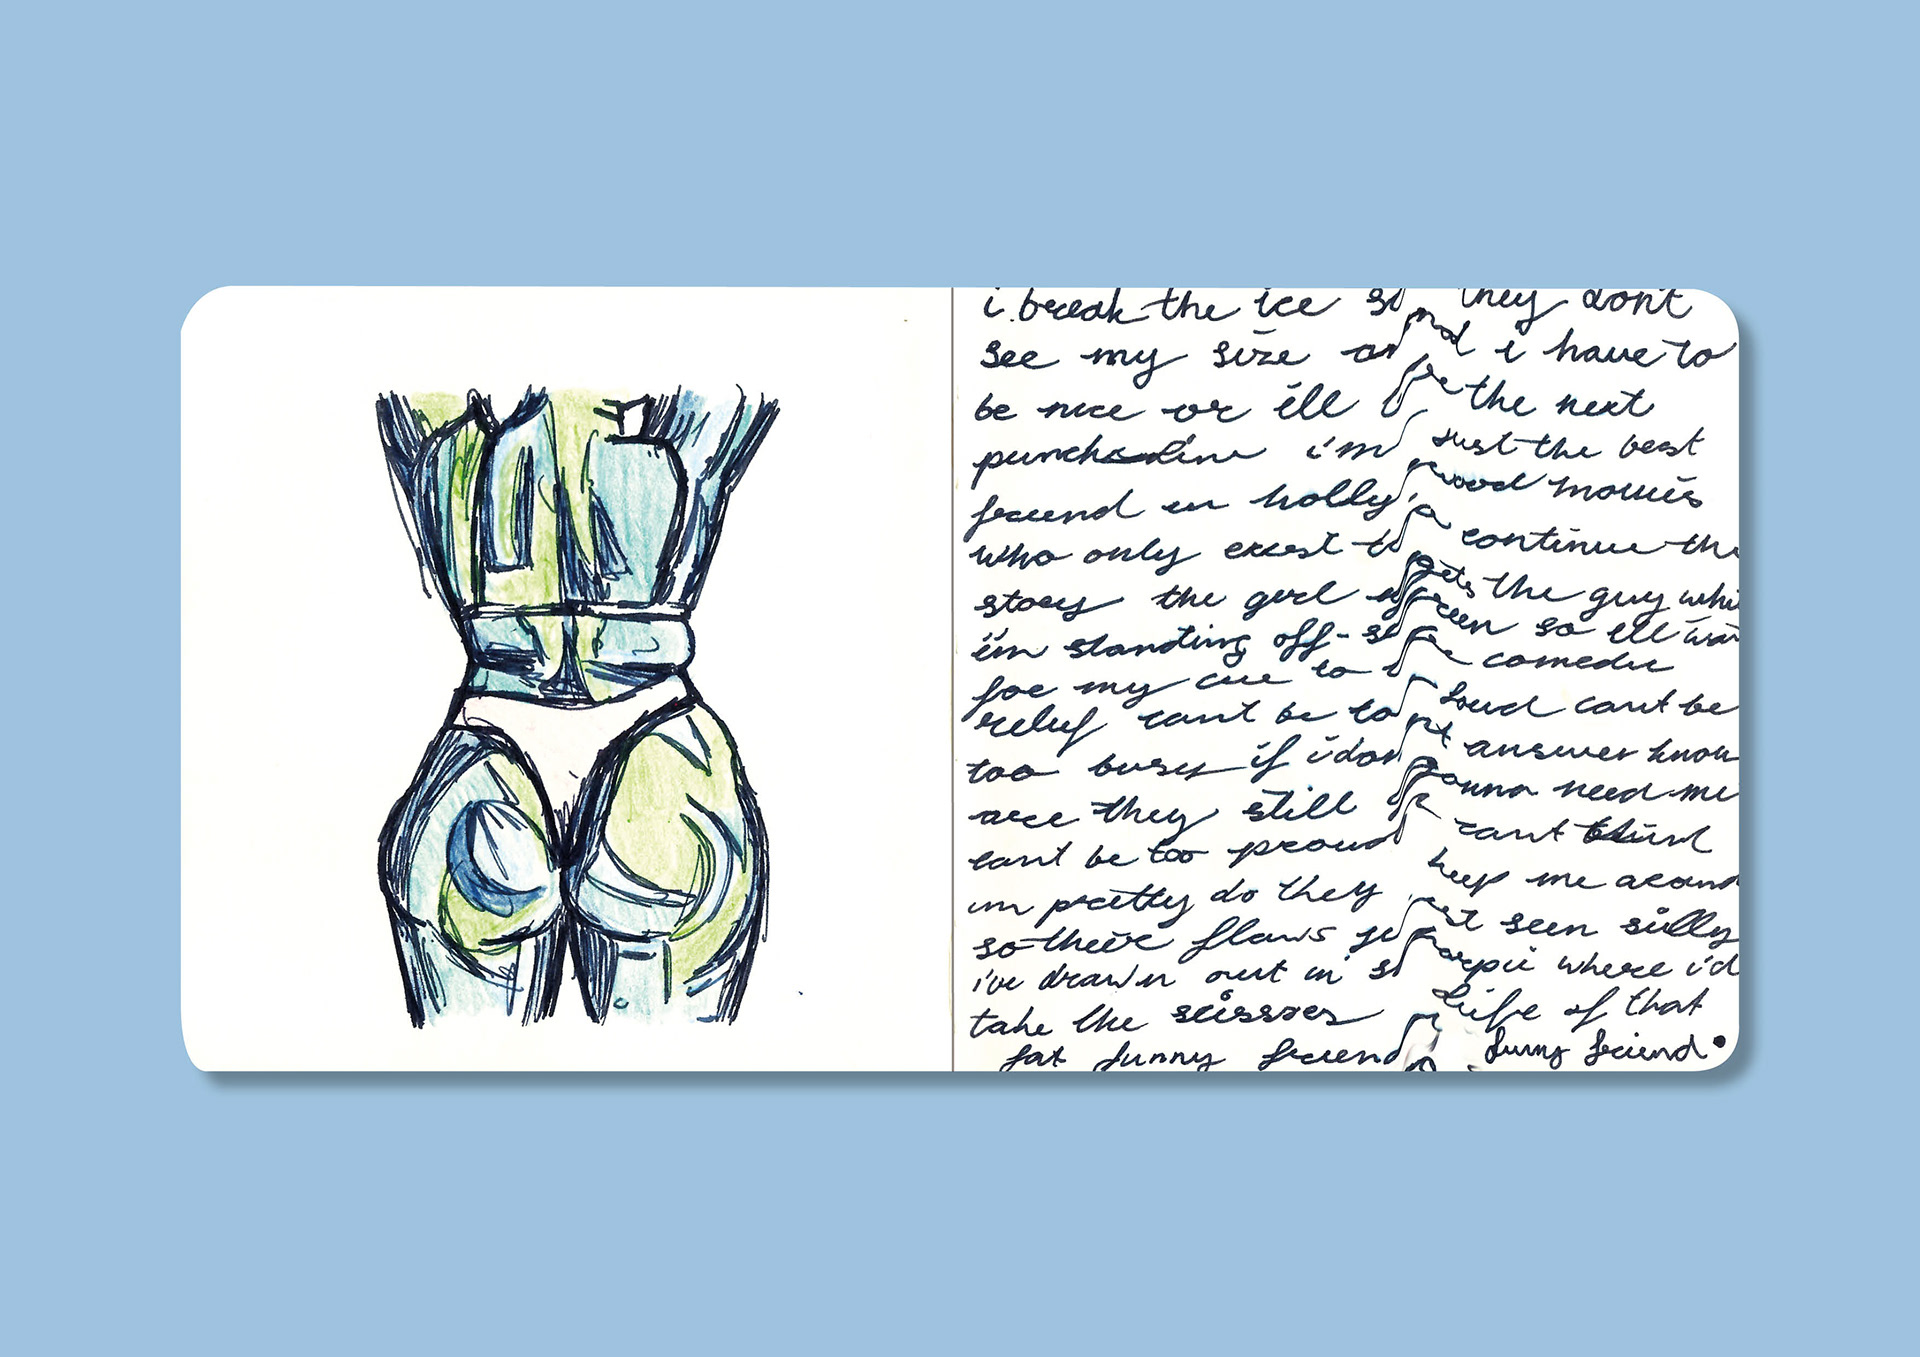 i break the ice so they don't
see my size and i have to
be nice or ill be the next
punch line i'm just the best
friend in hollywood movies
who only exist to continue the
story the girl gets the guy whi
i'm standing off-screen so ill wai
for my cue to be comedic
relief cant be too loud cant be
too busy if i don't answer know
are they still gonna need me
cant be too proud cant think
im pretty do they keep me around
so their flaws just seem silly
i've drawn out in sharpie where i'd
take the scissors life of that
fat funny friend funny friend.